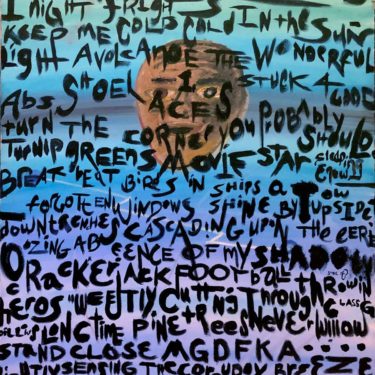 NIGHT
KEEP ME COLD COLD IN the SUN
Light A VOLCANOE the WONDERFUL
Abs SHOEL 1 OF STUCK 4 GOOD
turn THE ACES
CORNER YOU PROBABLY SHOULD
TURNIP GREENS MOVIE STAR
BREAT BEAT BIRDS IN SHIPS a TOW
FORGOTTEN WINDOWS SHINE BY UPSIDE
down CASCADING UPON THE EERIE
OZING ABSEENCE OF MY SHADOW
CRACKERJACK FOOTball thROWIN
heros SWEETLY CUTTING Through GLASS
LONG TIME PINE tREES NEVER WILLOW
STAND CLOSE MGDFKA....
SENSING THE